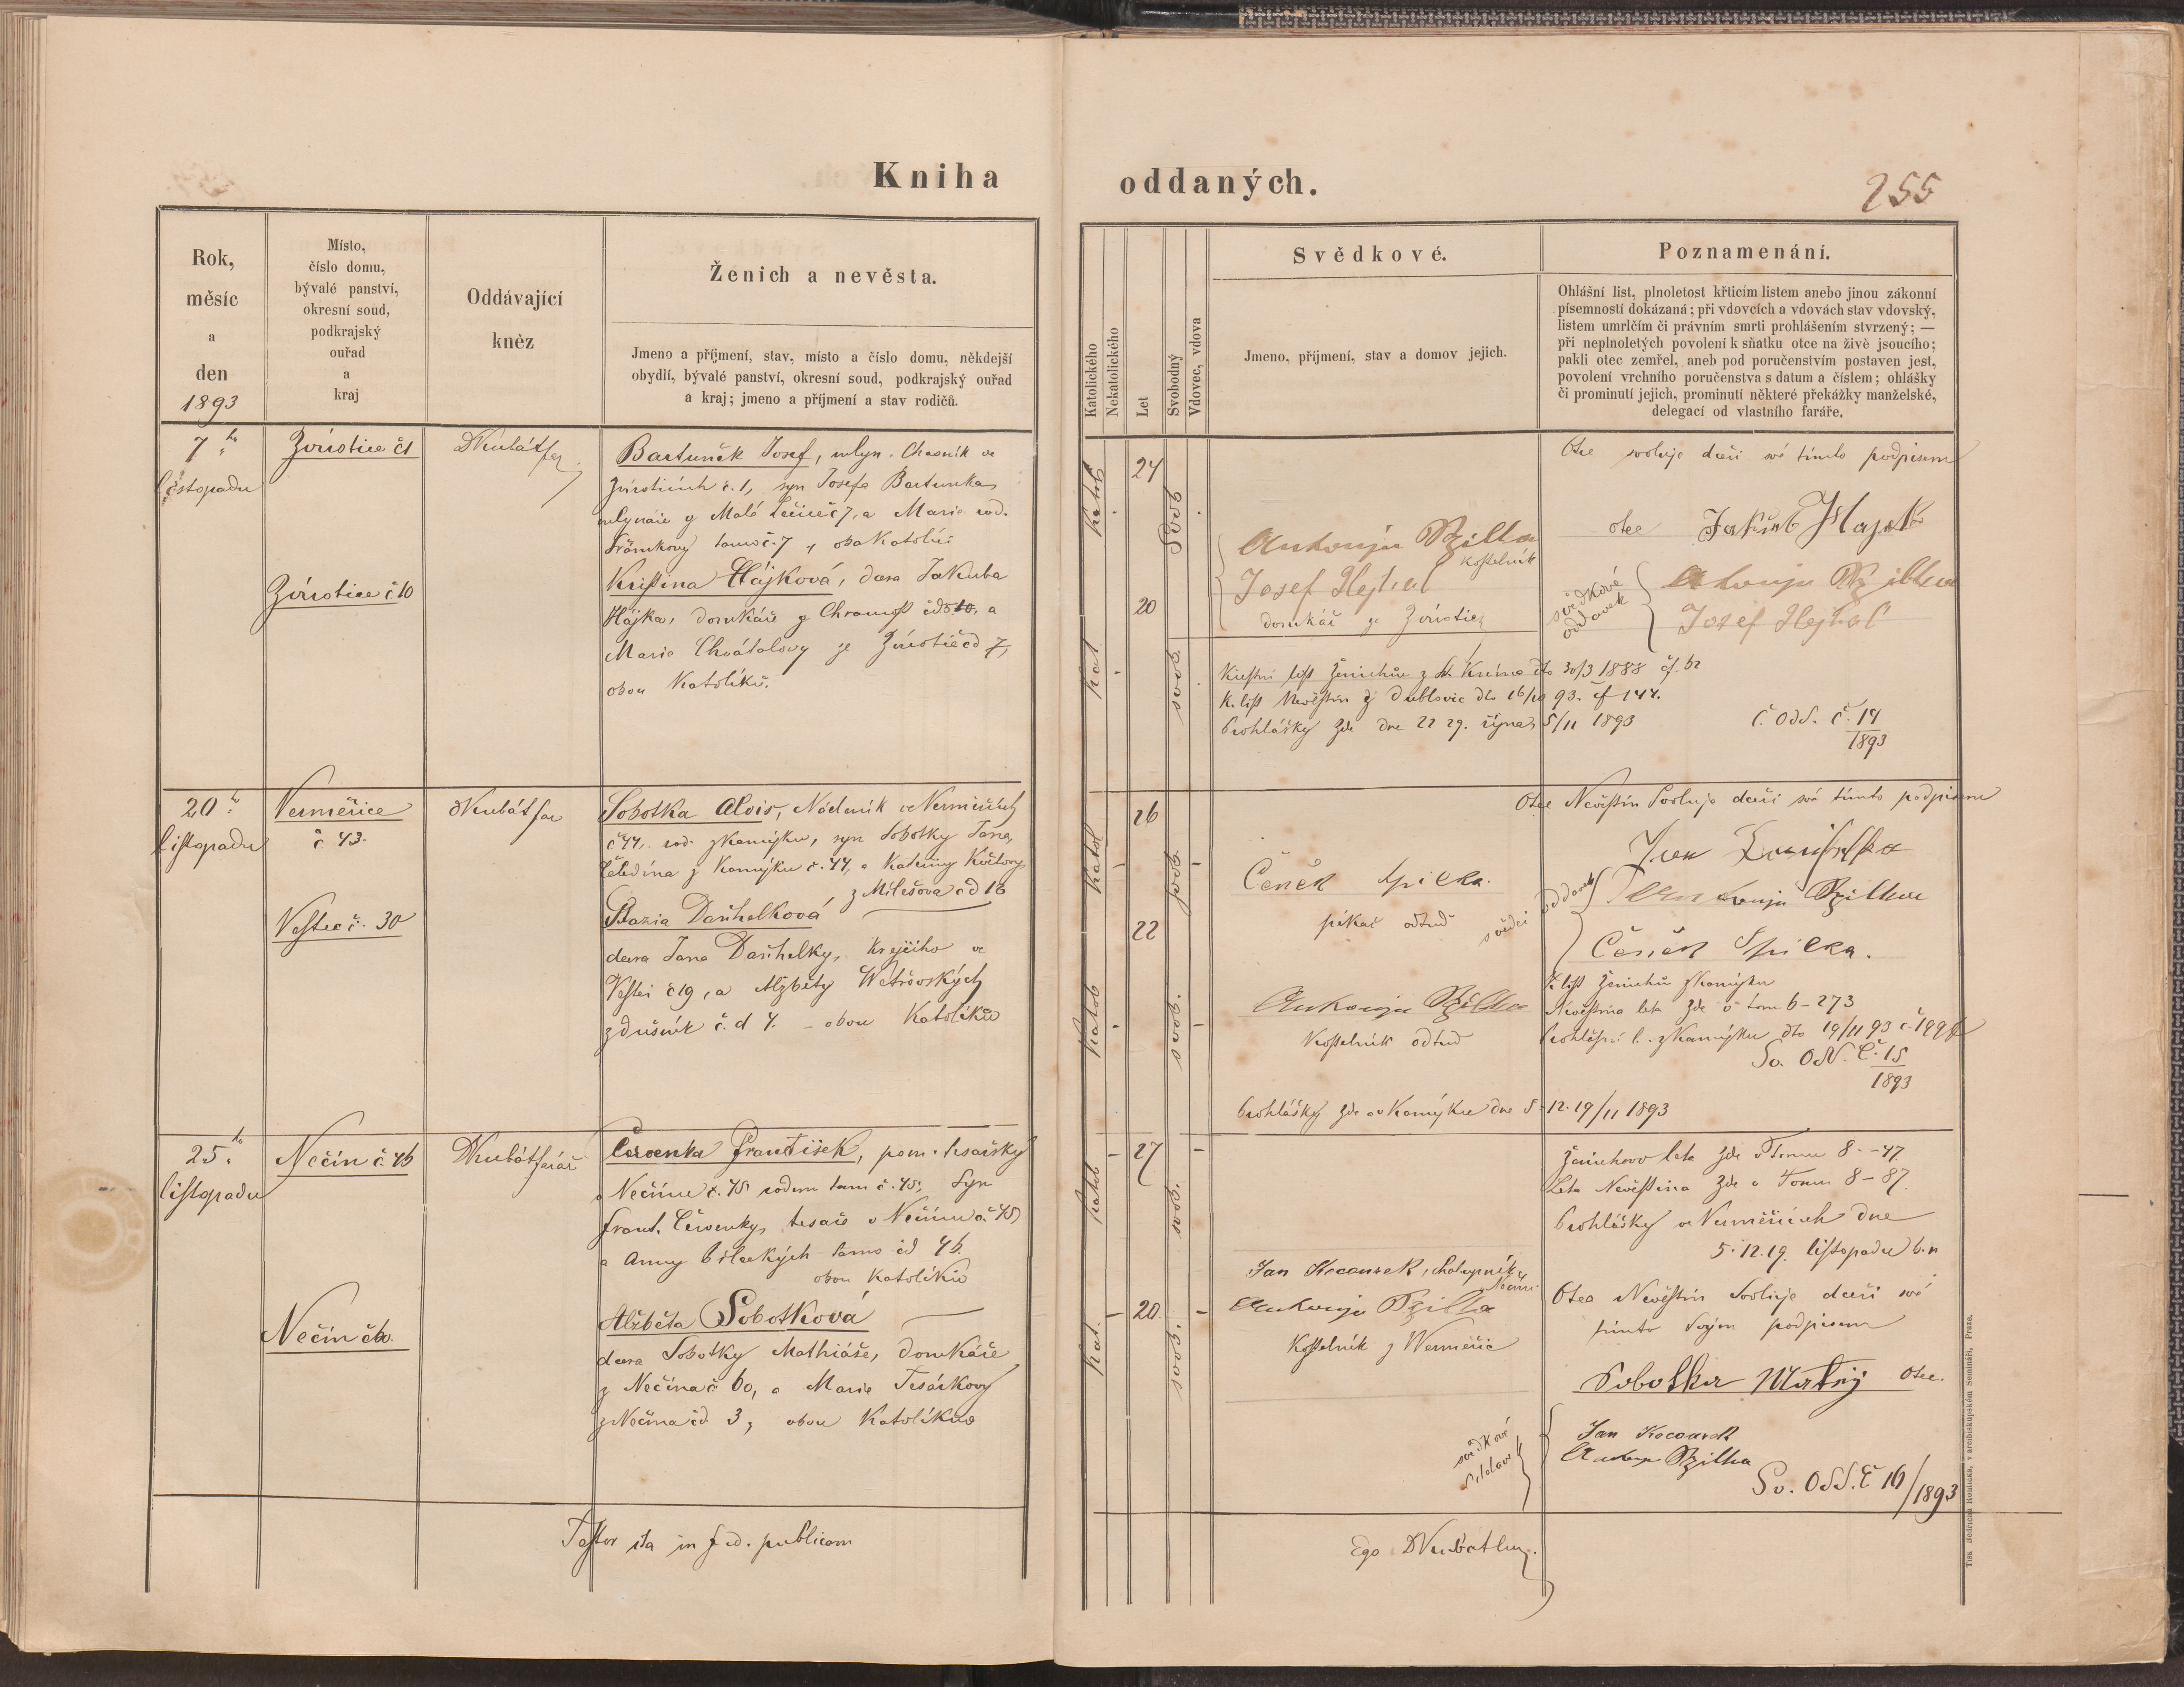 Kniha oddaných.
255
Rok,
měsíc
a
den
1893
Místo,
číslo domu,
bývalé panství,
okresní soud,
podkrajský
ouřad
a
kraj
Oddávající
kněz
Ženich a nevěsta.
Jmeno a příjmení, stav, místo a číslo domu, někdejší
obydlí, bývalé panství, okresní soud, podkrajský ouřad
a kraj; jmeno a příjmení a stav rodičů.
Katolického
Nekatolického
Let
Svobodný
Vdovec, vdova
Svědkové.
Jmeno, příjmení, stav a domov jejich.
Poznamenání.
Ohlášní list, plnoletost křticím listem anebo jinou zákonní
písemností dokázaná; při vdovcích a vdovách stav vdovský,
listem umrlčím či právním smrti prohlášením stvrzený; —
při neplnoletých povolení k sňatku otce na živě jsoucího;
pakli otec zemřel, aneb pod poručenstvím postaven jest,
povolení vrchního poručenstva s datum a číslem; ohlášky
či prominutí jejich, prominutí některé překážky manželské,
delegací od vlastního faráře.
7ho
listopadu
Zvírotice č1
Zvírotice č 10
DKubát far
Bartuněk Josef, mlyn. Chasník ve
Zvíroticích č. 1, syn Josefa Bartunka
mlynáře z Malé Lečice č 7, a Marie rod.
tamo č. 7, oba Katolíci
Kristina Hájková, dcera Jakuba
Hájka, domkáře z Chramost čd 10, a
Marie Chvátalovy ze Zvírotic čd 7,
obou Katolíků.
Katol
24
svob
Kat
20
svob.
AntonínRžilka
kostelník
Josef Hejhal
domkář ze Zvírotic
Otec svoluje dceři své tímto podpisem
otec Jakub Hajek
svědkové
oddavek
Antonín Ržilka
Josef Hejhal
Křestní list Ženichův z dto 30/3 1888 čf. 52
K. list Nevěstin z Dublovic dto 16/10 93. čf 144.
Prohlášky zde dne 22 29. října, 5/11 1893
Č. Odd. č. 14
1893
20ho
listopadu
Nerměřice
č 43.
Vestec č. 30
DKubát far
Sobotka Alois, Nádeník ve Nerměřicích
č 44, rod. z Kamýku, syn Sobotky Jana,
čeledína z Kamýku č. 44, a Kateřiny Květovy
z Milešova čd 16
Baria Daňhelková
dcera Jana Daňhelky, Krejčího ve
Vestci č 19, a Alžběty Wětrovských
z Dušník č. d 4. – obou Katolíků
Katol
26
svob.
Katol
22
svob.
Čeněk Spilka.
pekař odtud
Antonín Ržilka
Kostelník odtud
Otec Nevěstin Svoluje dceři své tímto podpisem
Jan Daňhelka
svědci
oddavek
Antonín Ržilka
Čeněk Spilka.
K list ženichův z Kamýku
Nevěstina leta zde v tom 6 – 273
Prohlášní l. z Kamýku dto 19/11 93 č 199
Sv. Odd. Č. 15
1893
Prohlášky zde a v Kamýku dne 5. 12. 19/11 1893
25ho
listopadu
Nečín č. 46
Nečín č 60.
DKubát farář
Červenka František, pom. tesařský
v Nečíně č. 45 rodem tam č. 45, Syn
Frant. Červenky, tesaře v Nečíně č 45
a Anny Bíleckých tamo čd 46.
obou Katolíků
Alžběta Sobotková
dcera Sobotky Mathiáše, domkáře
z Nečína č 60, a Marie Tesárkovy
z Nečína čd 3, obou Katolíků
Katol
27
svob.
Kat.
20
svob.
Jan Kocourek, chalupník
Nečín
Antonín Ržilka
Kostelník z Wermeřic
Ženichovo leta zde v Tomu 8 – 47
Leta Nevěstina zde v Tomu 8 – 87.
Prohlášky ve Nerměřicích dne
5. 12. 19. listopadu b. r
Otec Nevěstin Svoluje dceři své
tímto Svým podpisem
Sobotka Matěj Otec.
svědkové
Jan Kocourek
Antonín Ržilka
Sv. Odd. č 16/1893
Testor ita in fid. publicam
Ego DKubát
Tisk Bedřicha Rohlíčka, v arcibiskupském Semináři, Praze.